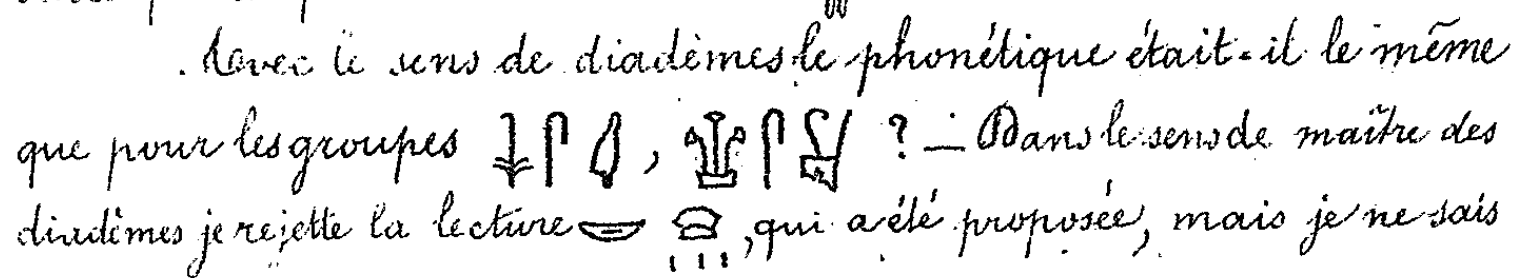 Avec le sens de diadèmes le phonétique était-il le même
que pour les groupes 𓇓𓋴, 𓋴 ? — Dans le sens de maître des
diadèmes je rejette la lecture 𓎟𓈍𓏥, qui a été proposée, mais je ne sais